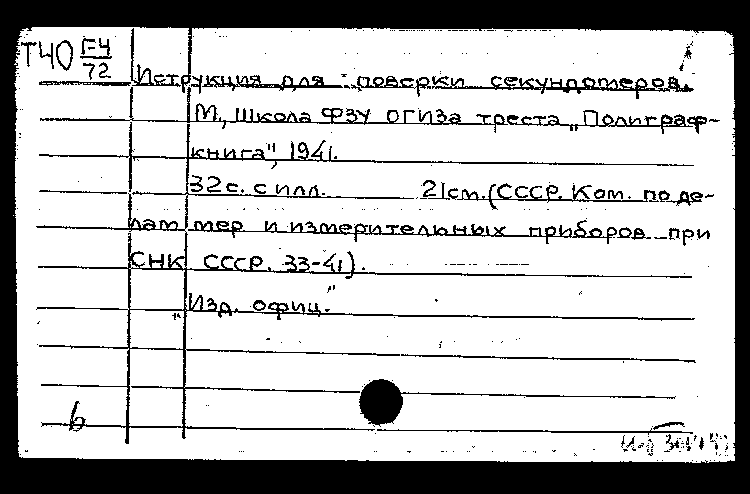 Т40 Г-4
72
Иструкция для поверки секундомеров.
М., Школа ФЗУ ОГИЗа треста „Полиграф-
книга", 1941.
32 с. с илл. 21 см. (СССР. Ком. по де-
лам мер и измерительных приборов при
СНК СССР. 33-41).
„Изд. офиц."
b